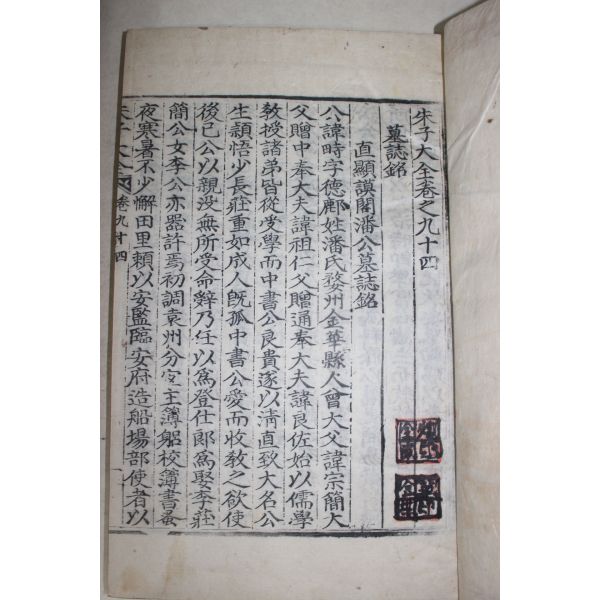 朱子大全卷之九十四
墓誌銘
直顯謨閣潘公墓誌銘
公諱時字德鄜姓潘氏婺州金華縣人曾大父諱宗簡大
父贈中奉大夫諱祖仁父贈通奉大夫諱良佐始以儒學
教授諸弟皆從受學而中書公良貴遂以清直致大名公
生穎悟少長莊重如成人旣孤中書公愛而收教之欲使
後已公以親没無所受命辭乃任以爲登仕郎爲娶李莊
簡公女李公亦器許焉初調袁州分宜主簿躬校簿書蚤
夜寒暑不少懈田里賴以安監臨安府造船場部使者以
卷九十四